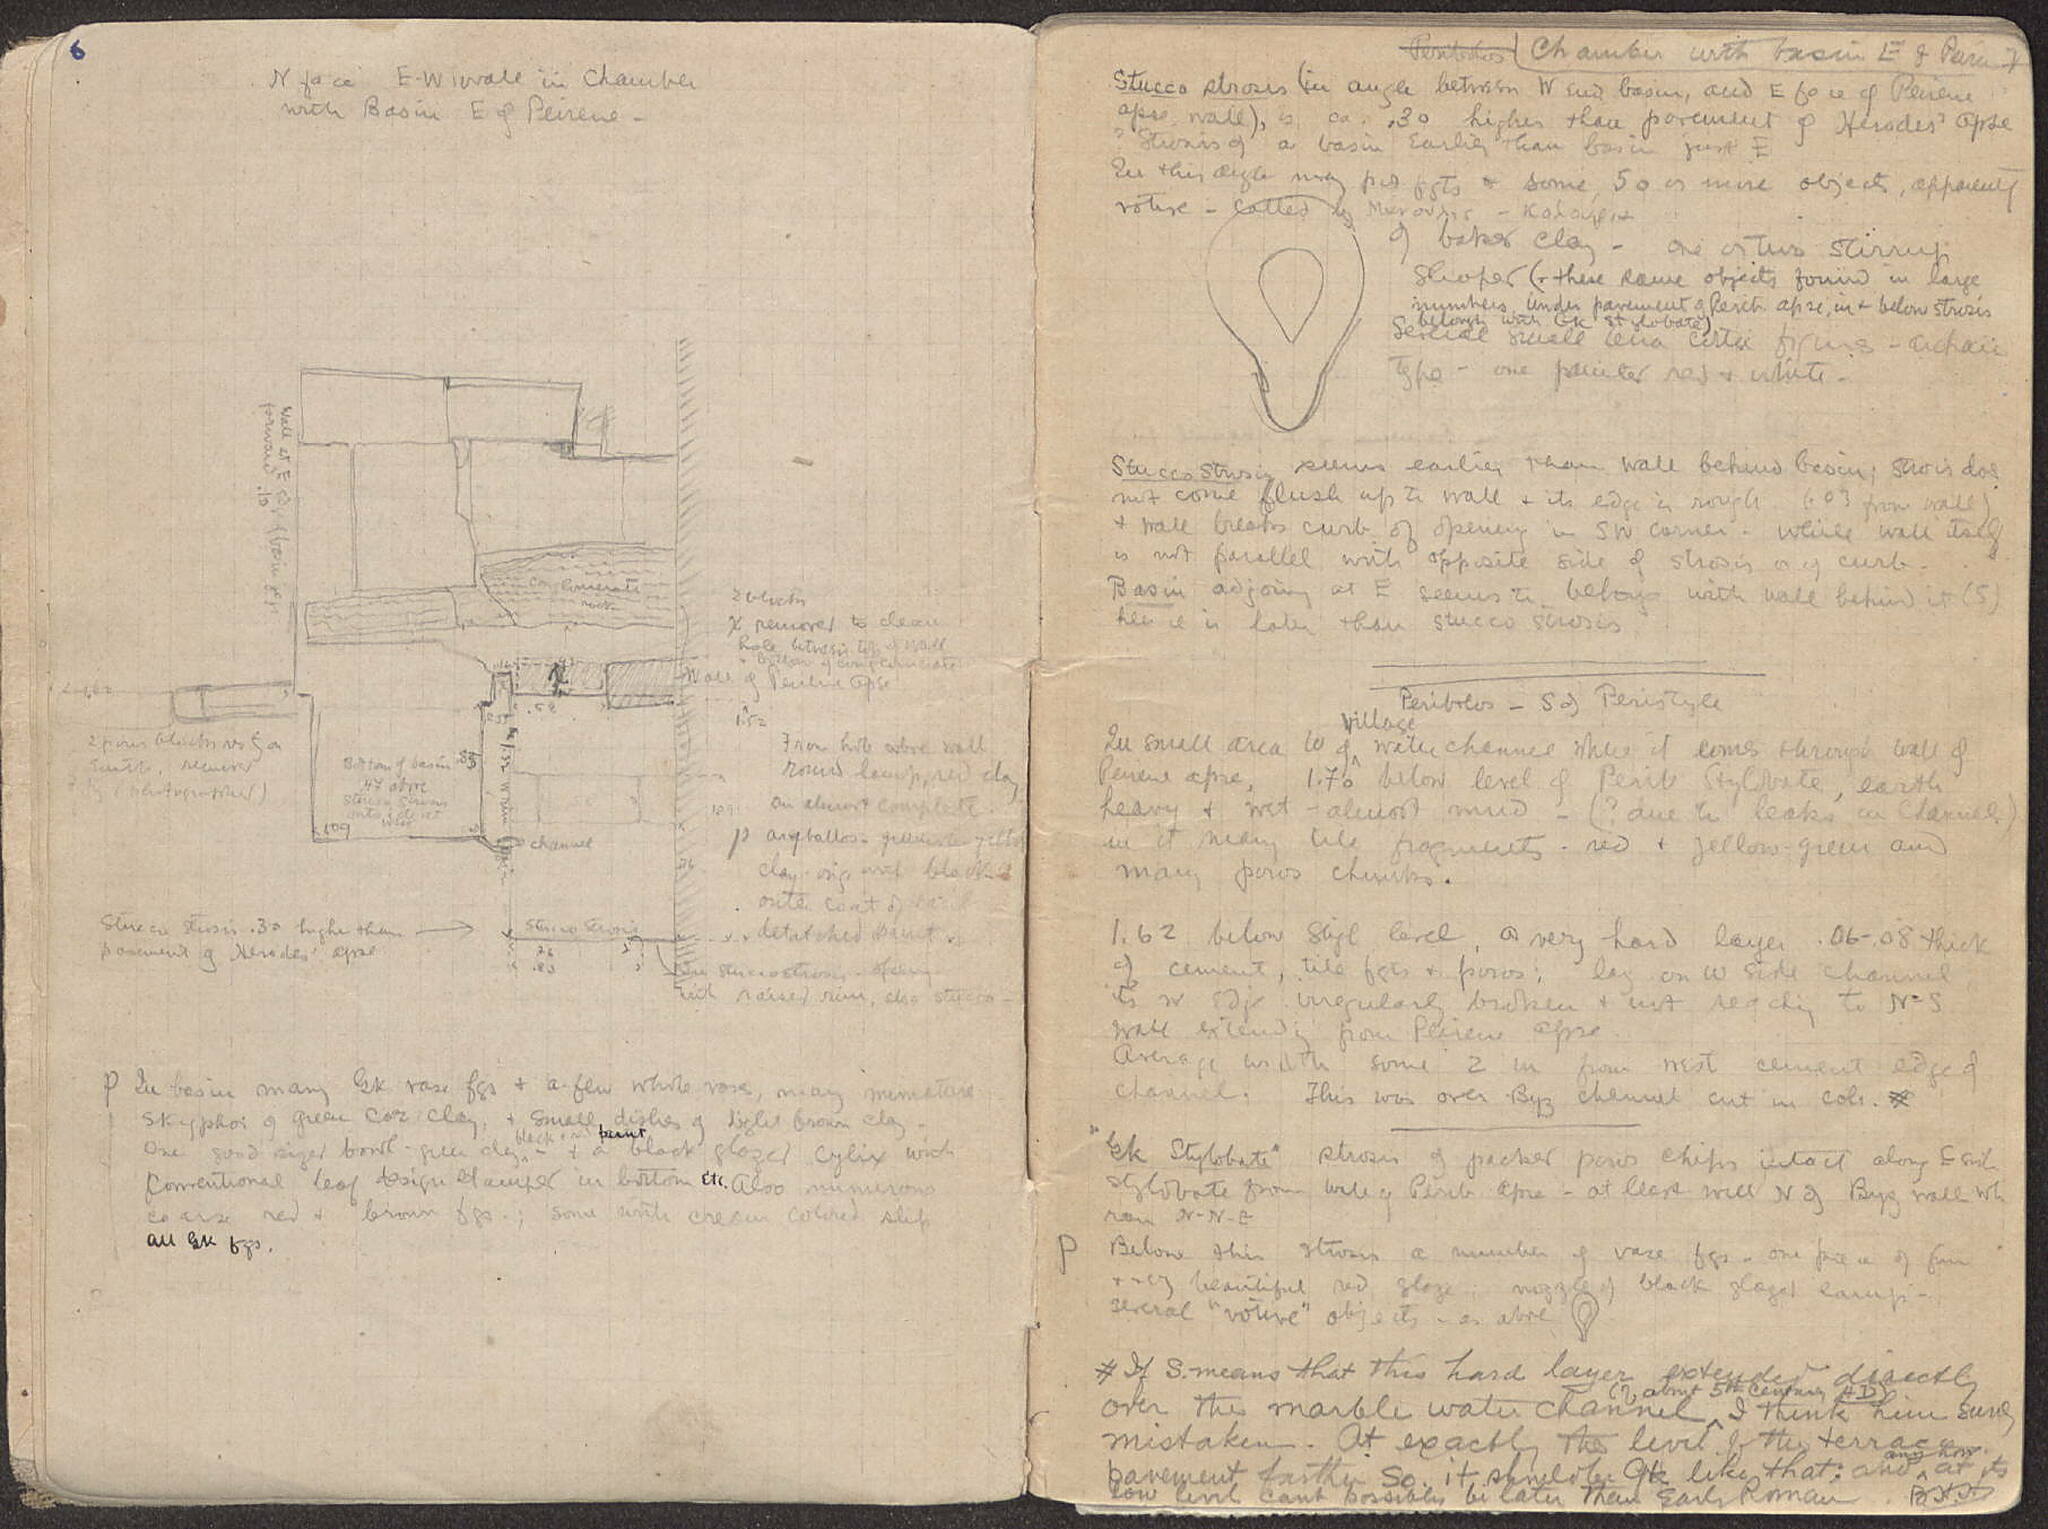 6
N face E-W wall in Chamber
with Basin E of Peirene -
Wall at E edge of basin
forward .10
conglomerate
rock
2 blocks
X removed to clean
hole between top of wall
+ bottom of conglomerate
Wall of Peirene Apse
.58
1.52
2 poros blocks resting on
earth, removed
(photographed)
Bottom of basin
.47 above
stucco strosis
channel
1.09
From hole above wall
round lamp, red clay
an almost complete
p aryballos - greenish yellow
clay - orig. with black
outer coat of
detatched paint.
Stucco strosis .30 higher than
pavement of Herodes' apse
Stucco strosis
.76
.80
In stucco strosis - opening
with raised rim, also stucco -
p In basin many Gk vase fgs + a few whole vases, many miniature
skyphoi of green Cor clay, + small dishes of light brown clay -
One good sized bowl - green clay, black + red paint - + a black glazed cylix with
conventional leaf design stamped in bottom etc. Also numerous
coarse red + brown fgs.; some with cream colored slip
all Gk fgs.
Peribolos Chamber with basin E of Peirene
Stucco strosis (in angle between W end basin, and E face of Peirene
apse wall), is ca. .30 higher than pavement of Herodes' apse
? Strosis of a basin earlier than basin just E
In this angle many pot fgts + some 50 or more objects, apparently
votive - called by
of baked clay - one or two stirrup
shaped (+ these same objects found in large
numbers under pavement of Perib. apse, in + below strosis
belongs with Gk Stylobate)
Several small terra cotta figures - archaic
type - one painted red + white -
Stucco Strosis seems earlier than wall behind basin; strosis does
not come flush up to wall + its edge is rough (.03 from wall)
+ wall breaks curb of opening in SW corner - while wall itself
is not parallel with opposite side of strosis or of curb -
Basin adjoining at E seems to belong with wall behind it (S)
hence is later than stucco strosis
Peribolos - S of Peristyle
In small area W of village water channel where it comes through wall of
Peirene apse, 1.70 below level of Perib Stylobate, earth
heavy + wet - almost mud - (? due to leaks in Channel)
in it many tile fragments - red + yellow-green and
many poros chunks.
1.62 below Styl level, a very hard layer .06-.08 thick
of cement, tile fgts + poros; lay on W side channel
its W edge irregularly broken + not reaching to N-S
wall extending from Peirene apse.
Average width some 2 m from west cement edge of
channel. This was over Byz channel cut in col. #
"Gk Stylobate" strosis of packed poros chips intact along E side
stylobate from wall of Perib. apse - at least well N of Byz wall wh
ran N-N-E
p Below this strosis a number of vase fgs - one piece of fine
+ very beautiful red glaze; nozzle of black glazed lamp -
several "votive" objects - as above
# If S. means that this hard layer extended directly
over the marble water channel (? about 5th century AD), I think him surely
mistaken. At exactly the level of the terrace
pavement farther So. it should be Gk like that: and anyhow at its
low level cant possibly be later than Early Roman. B.H.H.